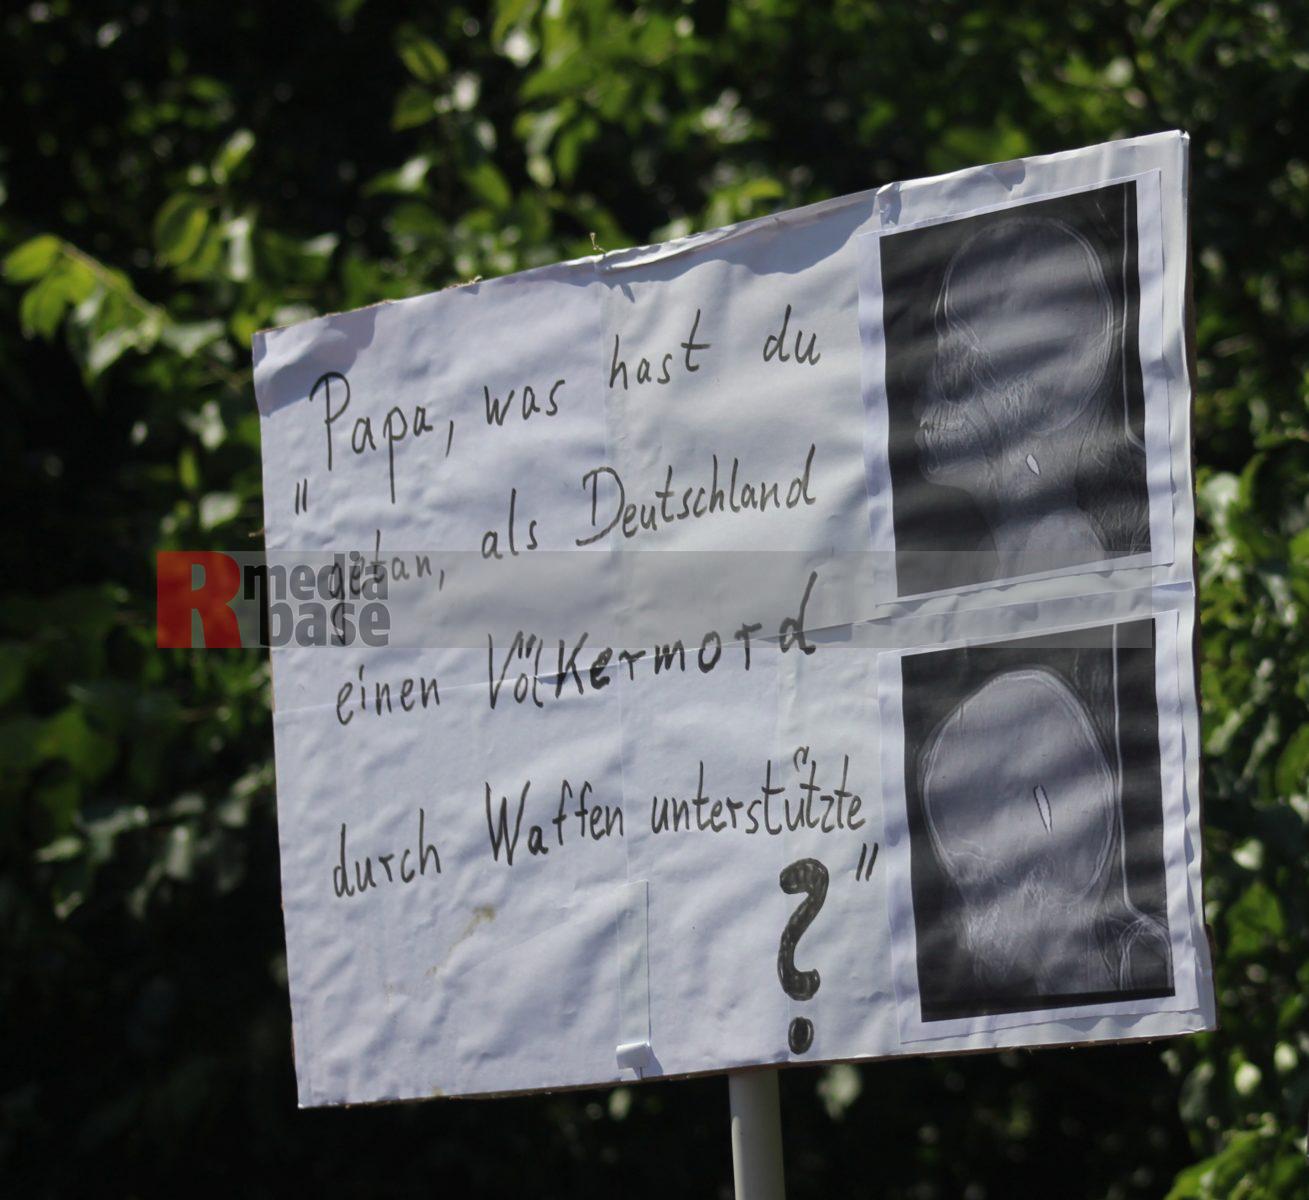 "Papa, was hast du
getan, als Deutschland
einen Völkermord
durch Waffen unterstützte"
?
R media
base